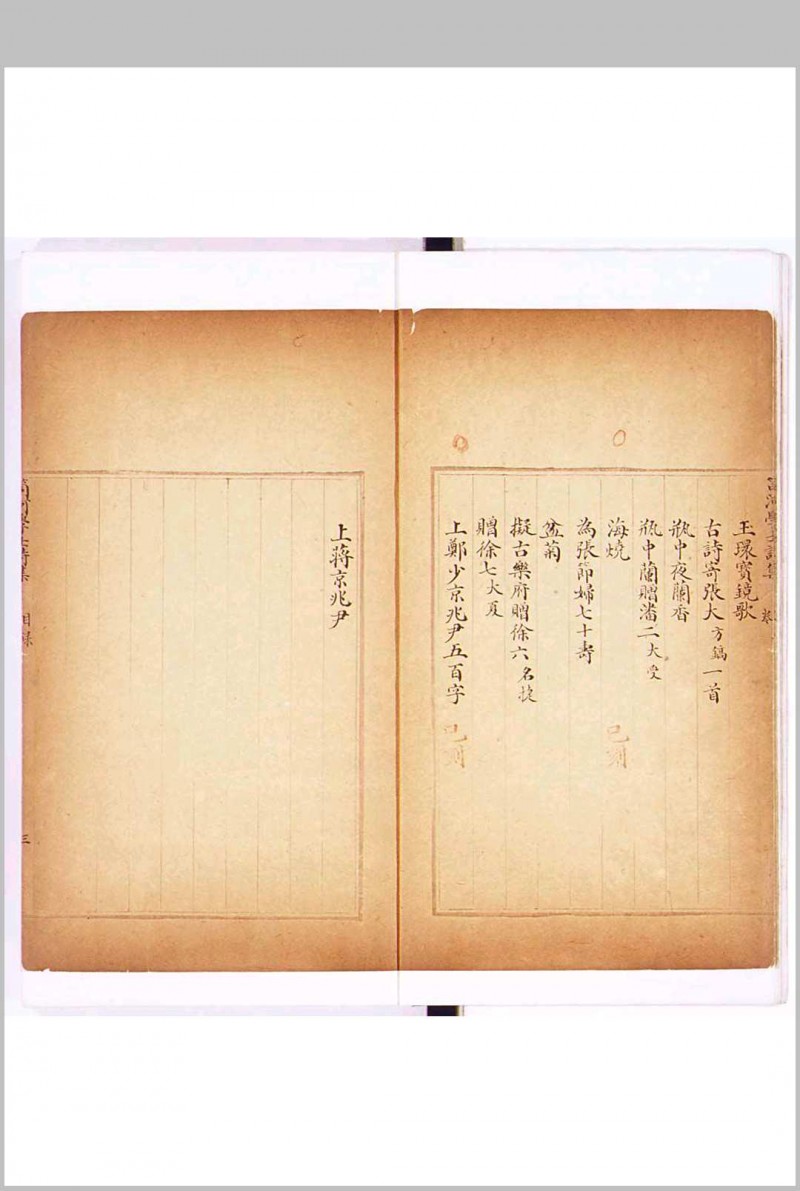 玉環寶鏡歌
古詩寄張大方鎬一首
瓶中夜蘭香
瓶中蘭贈潘二大受
海燒 已刻
為張節婦七十壽
盆菊
擬古樂府贈徐六名捷
贈徐七大夏
上鄭少京兆尹五百字 已刻
上蔣京兆尹
目錄
三